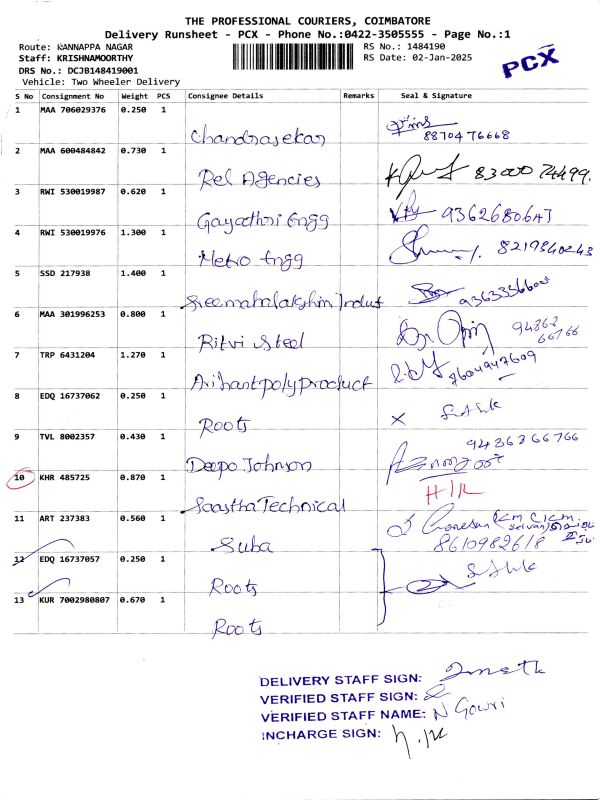 THE PROFESSIONAL COURIERS, COIMBATORE
Delivery Runsheet - PCX - Phone No.:0422-3505555 - Page No.:1
Route: KANNAPPA NAGAR RS No.: 1484190
Staff: KRISHNAMOORTHY RS Date: 02-Jan-2025
DRS No.: DCJB148419001
Vehicle: Two Wheeler Delivery
PCX
S No Consignment No Weight PCS Consignee Details Remarks Seal & Signature
1 MAA 706029376 0.250 1
Chandrasekar 8870476668
2 MAA 600484842 0.730 1
Rel Agencies
3 RWI 530019987 0.620 1
Gayathri Engg
4 RWI 530019976 1.300 1
Metro Engg 8219840243
5 SSD 217938 1.400 1
Sreemahalakshmi Indust
6 MAA 301996253 0.800 1
Ritvi Steel 94862 66766
7 TRP 6431204 1.270 1
Arihant polyproduct 8604947609
8 EDQ 16737062 0.250 1
Roots
9 TVL 8002357 0.430 1
Deepo Johnson 9486266766
10 KHR 485725 0.870 1
Saastha Technical H/R
11 ART 237383 0.560 1
Suba 8610982618
12 EDQ 16737057 0.250 1
Roots
13 KUR 7002980807 0.670 1
Roots
DELIVERY STAFF SIGN:
VERIFIED STAFF SIGN:
VERIFIED STAFF NAME: N Gowri
INCHARGE SIGN: